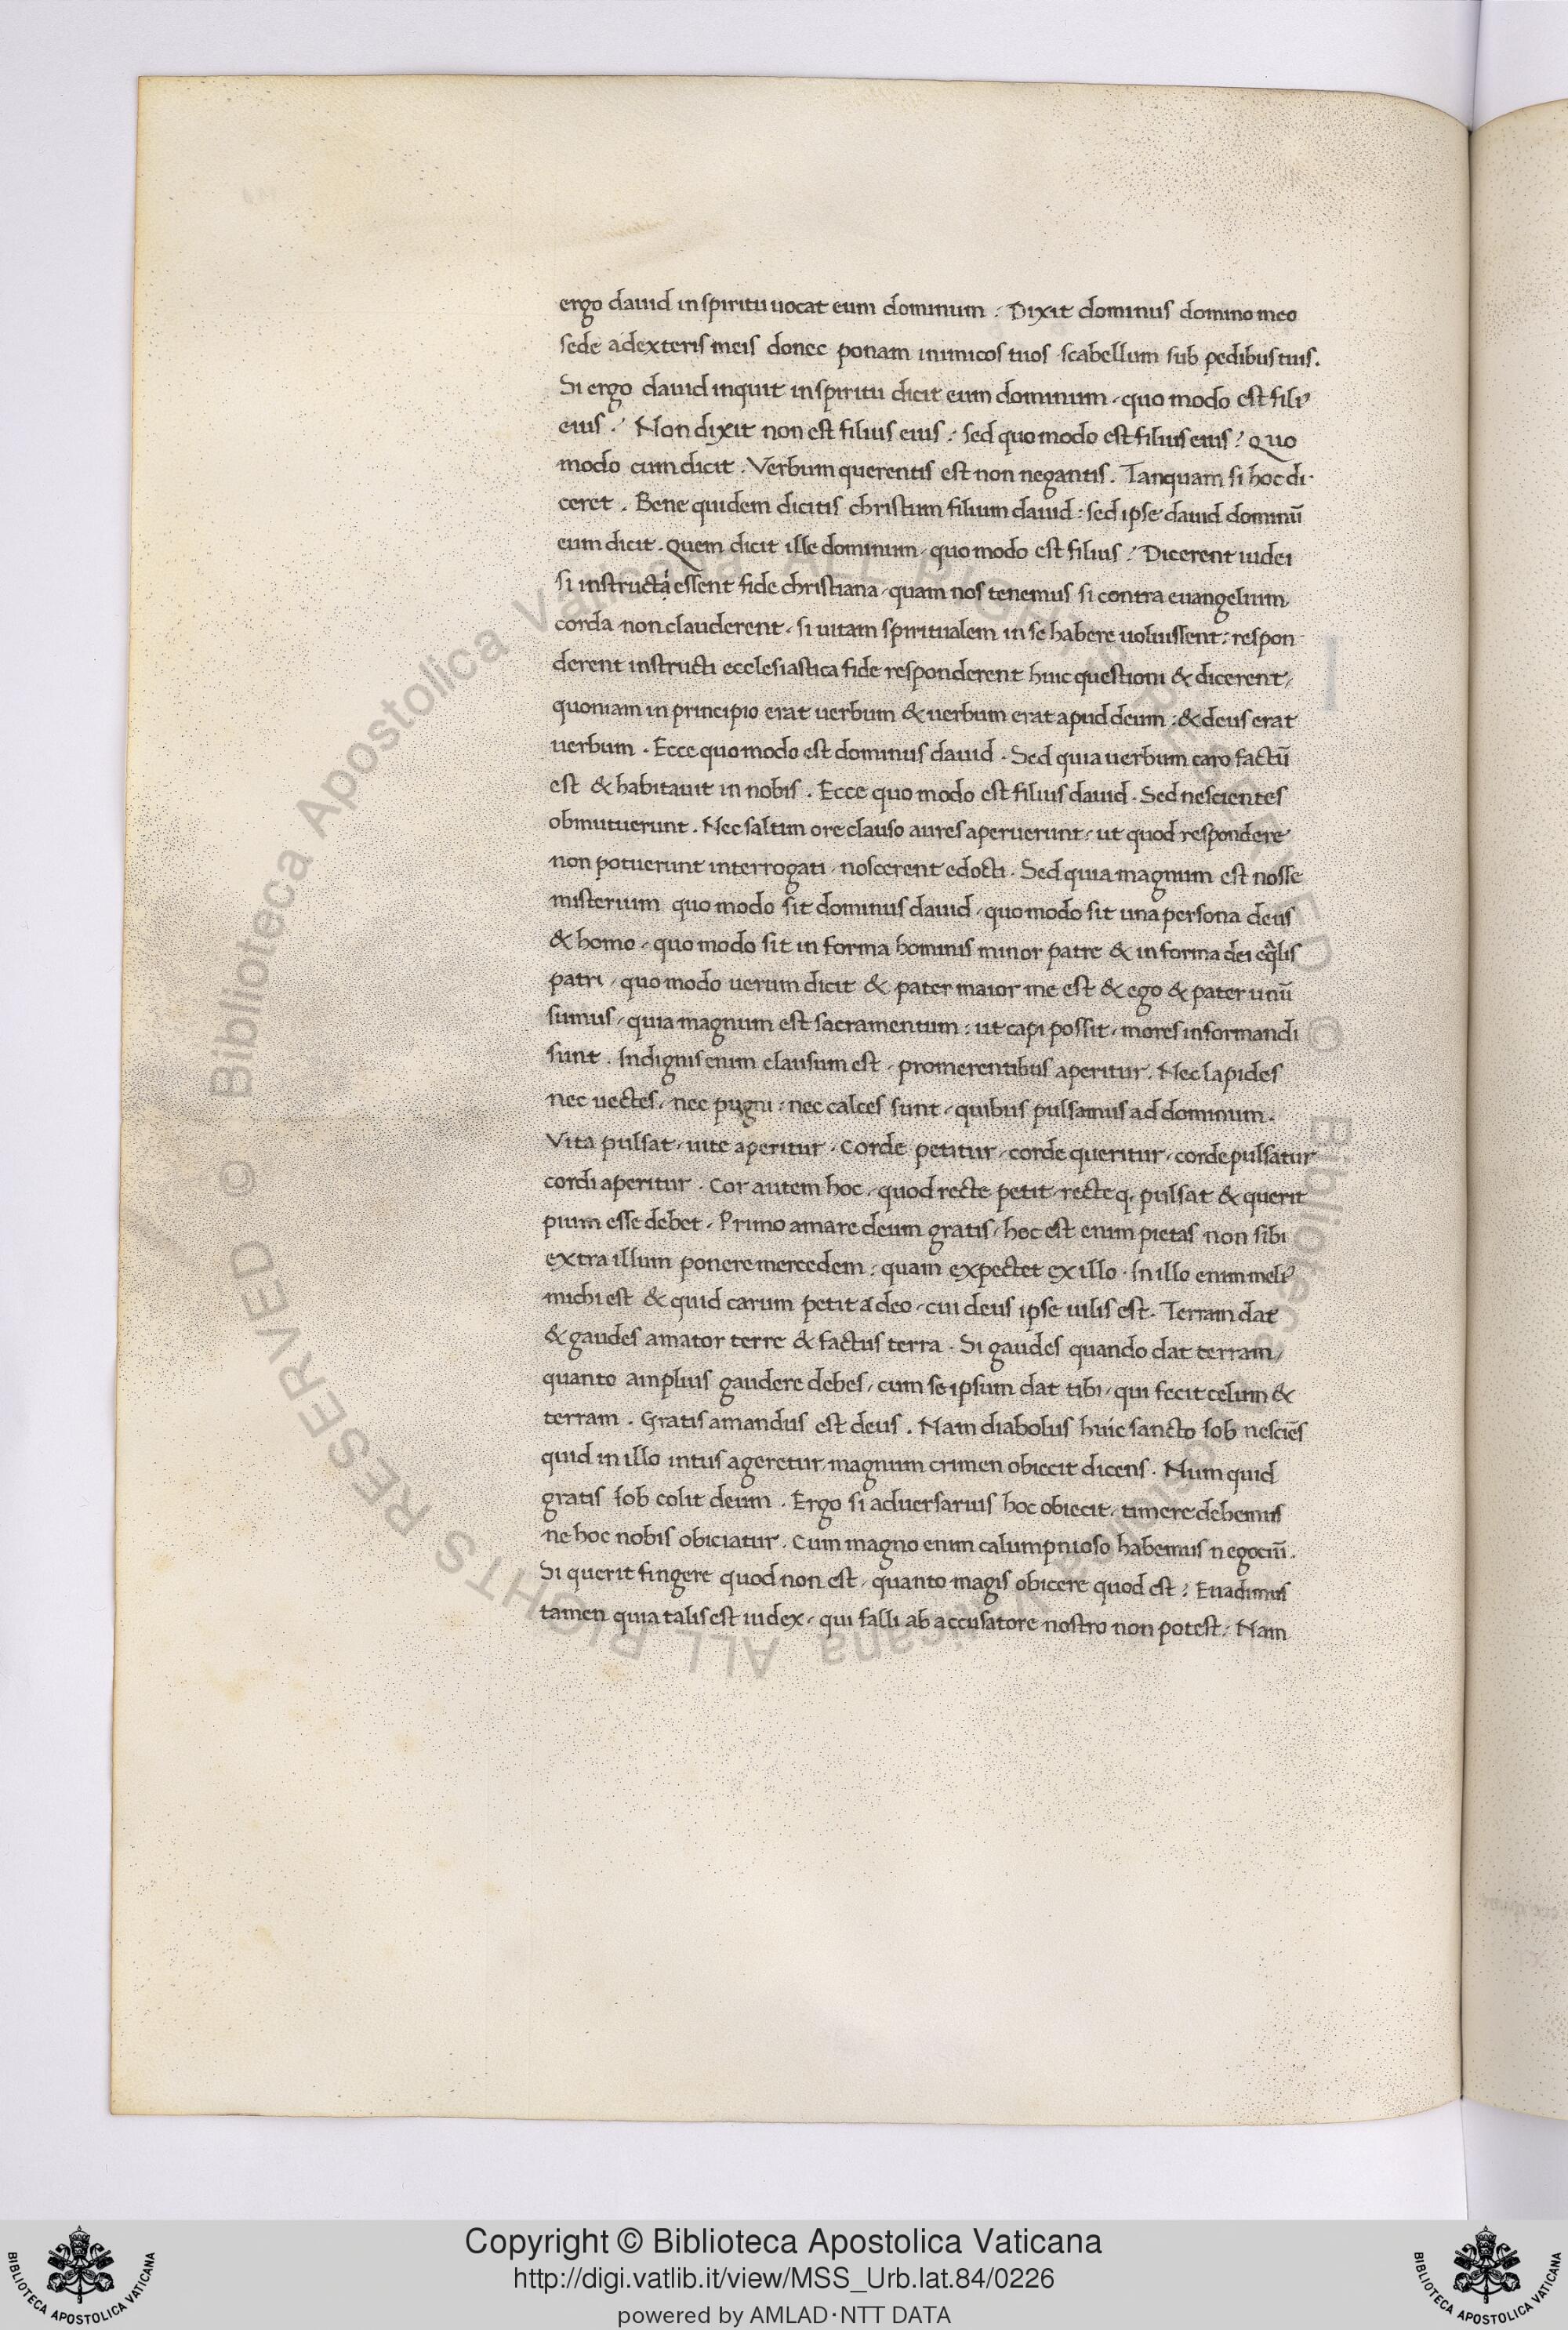 ergo dauid in spiritu uocat eum dominum . Dixit dominus domino meo
sede adexteris meis donec ponam inimicos tuos scabellum sub pedibus tuis.
Si ergo dauid inquit in spiritu dicit eum dominum, quo modo est fili⁹
eius ? Non dixit non est filius eius : sed quo modo est filius eius ? Quo
modo cum dicit . Verbum querentis est non negantis . Tanquam si hoc di-
ceret . Bene quidem dicitis christum filium dauid : sed ipse dauid dominū
eum dicit . Quem dicit ille dominum, quo modo est filius ? Dicerent iudei
si instructạ́ essent fide christiana, quam nos tenemus si contra euangelium
corda non clauderent, si uitam spiritualem in se habere uoluissent : respon
derent instructi ecclesiastica fide responderent huic questioni & dicerent,
quoniam in principio erat uerbum & uerbum erat apud deum : & deus erat
uerbum . Ecce quo modo est dominus dauid . Sed quia uerbum caro factū
est & habitauit in nobis . Ecce quo modo est filius dauid . Sed nescientes
obmutuerunt . Nec saltim ore clauso aures aperuerunt, ut quod respondere
non potuerunt interrogati, noscerent edocti . Sed quia magnum est nosse
misterium quo modo sit dominus dauid, quo modo sit una persona deus
& homo, quo modo sit in forma hominis minor patre & in forma dei eq̄lis
patri, quo modo uerum dicit & pater maior me est & ego & pater unū
sumus, quia magnum est sacramentum : ut capi possit, mores informandi
sunt . Indignis enim clausum est, promerentibus aperitur . Nec lapides
nec uectes, nec pugni : nec calces sunt, quibus pulsamus ad dominum .
Vita pulsat, uite aperitur . Corde petitur, corde queritur, corde pulsatur
cordi aperitur . Cor autem hoc, quod recte petit, recteq, pulsat & querit
pium esse debet . Primo amare deum gratis, hoc est enim pietas non sibi
extra illum ponere mercedem : quam expectet ex illo . In illo enim meli⁹
michi est & quid carum petit á deo, cui deus ipse uilis est . Terram dat
& gaudes amator terre & factus terra . Si gaudes quando dat terram,
quanto amplius gaudere debes, cum se ipsum dat tibi, qui fecit celum &
terram . Gratis amandus est deus . Nam diabolus huic sancto Iob nesciēs
quid in illo intus ageretur, magnum crimen obiecit dicens . Num quid
gratis Iob colit deum . Ergo si aduersarius hoc obiecit, timere debemus
ne hoc nobis obiciatur . Cum magno enim calumpnioso habemus negociū .
Si querit fingere quod non est, quanto magis obicere quod est ? Euadimus
tamen quia talis est iudex, qui falli ab accusatore nostro non potest : Nam
© Biblioteca Apostolica Vaticana ALL RIGHTS RESERVED © Biblioteca Apostolica Vaticana ALL RIGHTS RESERVED
Copyright © Biblioteca Apostolica Vaticana
http://digi.vatlib.it/view/MSS_Urb.lat.84/0226
powered by AMLAD·NTT DATA
BIBLIOTECA APOSTOLICA VATICANA
BIBLIOTECA APOSTOLICA VATICANA